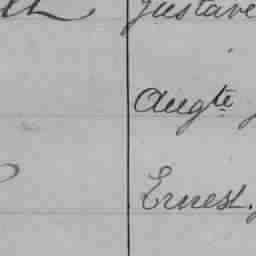 Gustave
Augte
Ernest.